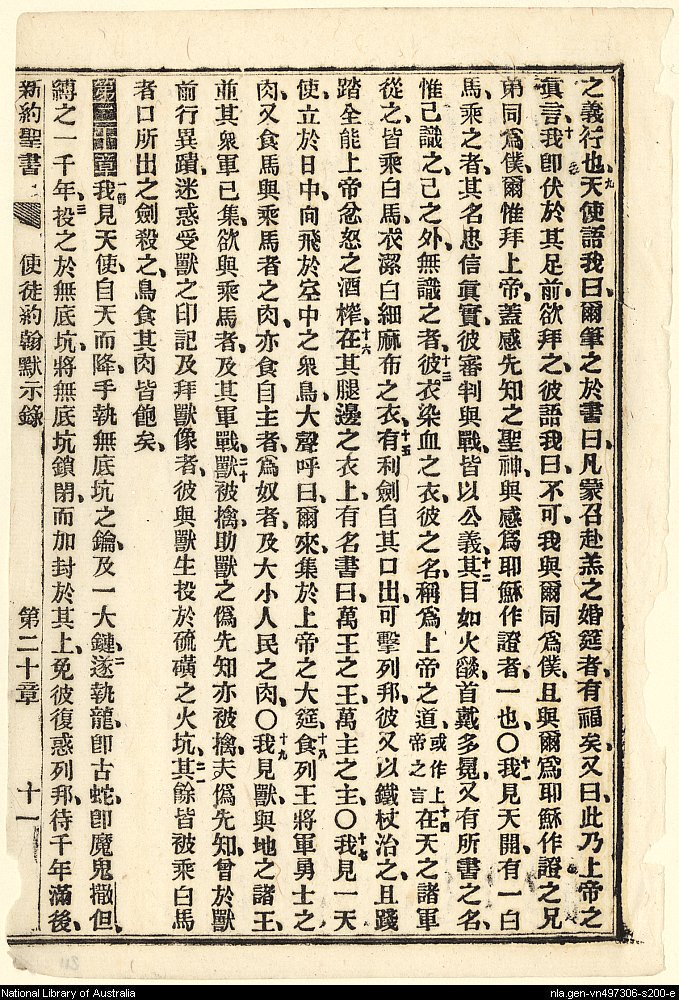 之義行也、九天使語我曰、爾筆之於書曰、凡蒙召赴羔之婚筵者、有福矣、又曰、此乃上帝之
眞言、十我卽伏於其足前、欲拜之、彼語我曰、不可、我與爾同爲僕、且與爾爲耶穌作證之兄
弟同爲僕、爾惟拜上帝、蓋感先知之聖神、與感爲耶穌作證者、一也、〇十一我見天開、有一白
馬、乘之者、其名忠信眞實、彼審判與戰、皆以公義、十二其目如火燄、首戴多冕、又有所書之名、
惟己識之、己之外、無識之者、十三彼衣染血之衣、彼之名、稱爲上帝之道、或作上帝之言十四在天之諸軍
從之、皆乘白馬、衣潔白細麻布之衣、十五有利劍自其口出、可擊列邦、彼又以鐵杖治之、且踐
踏全能上帝忿怒之酒榨、十六在其腿邊之衣上、有名書曰、萬王之王、萬主之主、〇十七我見一天
使、立於日中、向飛於空中之衆鳥、大聲呼曰、爾來、集於上帝之大筵、十八食列王將軍勇士之
肉、又食馬與乘馬者之肉、亦食自主者、爲奴者、及大小人民之肉、〇十九我見獸與地之諸王、
並其衆軍已集、欲與乘馬者、及其軍戰、二十獸被擒、助獸之僞先知亦被擒、夫僞先知、曾於獸
前行異蹟、迷惑受獸之印記、及拜獸像者、彼與獸生投於硫磺之火坑、二一其餘皆被乘白馬
者口所出之劍殺之、鳥食其肉皆飽矣、
第二十章 一節我見天使、自天而降、手執無底坑之鑰、及一大鏈、二遂執龍卽古蛇、卽魔鬼撒但、
縛之一千年、三投之於無底坑、將無底坑鎖閉、而加封於其上、免彼復惑列邦、待千年滿後、
新約聖書 使徒約翰默示錄 第二十章 十一
National Library of Australia
nla.gen-vn497306-s200-e